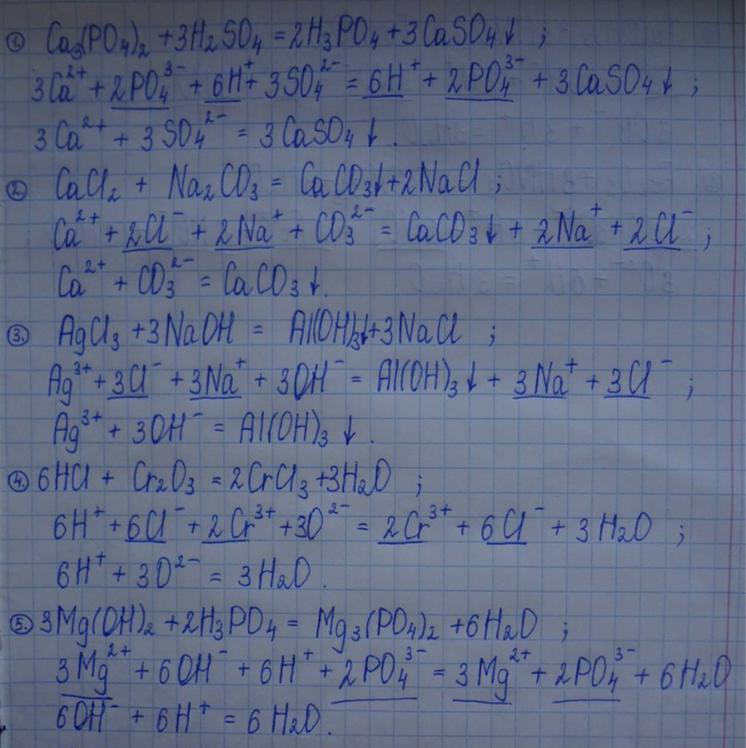 1. Ca₃(PO₄)₂ + 3H₂SO₄ = 2H₃PO₄ + 3CaSO₄↓ ;
3Ca²⁺ + 2PO₄³⁻ + 6H⁺ + 3SO₄²⁻ = 6H⁺ + 2PO₄³⁻ + 3CaSO₄↓ ;
3Ca²⁺ + 3SO₄²⁻ = 3CaSO₄↓.
2. CaCl₂ + Na₂CO₃ = CaCO₃↓ + 2NaCl ;
Ca²⁺ + 2Cl⁻ + 2Na⁺ + CO₃²⁻ = CaCO₃↓ + 2Na⁺ + 2Cl⁻ ;
Ca²⁺ + CO₃²⁻ = CaCO₃↓.
3. AgCl₃ + 3NaOH = Al(OH)₃↓ + 3NaCl ;
Ag³⁺ + 3Cl⁻ + 3Na⁺ + 3OH⁻ = Al(OH)₃↓ + 3Na⁺ + 3Cl⁻ ;
Ag³⁺ + 3OH⁻ = Al(OH)₃↓.
4. 6HCl + Cr₂O₃ = 2CrCl₃ + 3H₂O ;
6H⁺ + 6Cl⁻ + 2Cr³⁺ + 3O²⁻ = 2Cr³⁺ + 6Cl⁻ + 3H₂O ;
6H⁺ + 3O²⁻ = 3H₂O.
5. 3Mg(OH)₂ + 2H₃PO₄ = Mg₃(PO₄)₂ + 6H₂O ;
3Mg²⁺ + 6OH⁻ + 6H⁺ + 2PO₄³⁻ = 3Mg²⁺ + 2PO₄³⁻ + 6H₂O
6OH⁻ + 6H⁺ = 6H₂O.